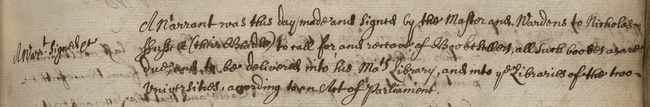 A Warrant was this day made and signed by the Master and Wardens to Nicholas
A Warrt. signed &c
(their Beadle) to call for and receave of Booksellers, all such bookes as are
due, and to be delivered into his Mats. Library, and into ye Libraries of the two
Universities, acording to an Act of Parliament.